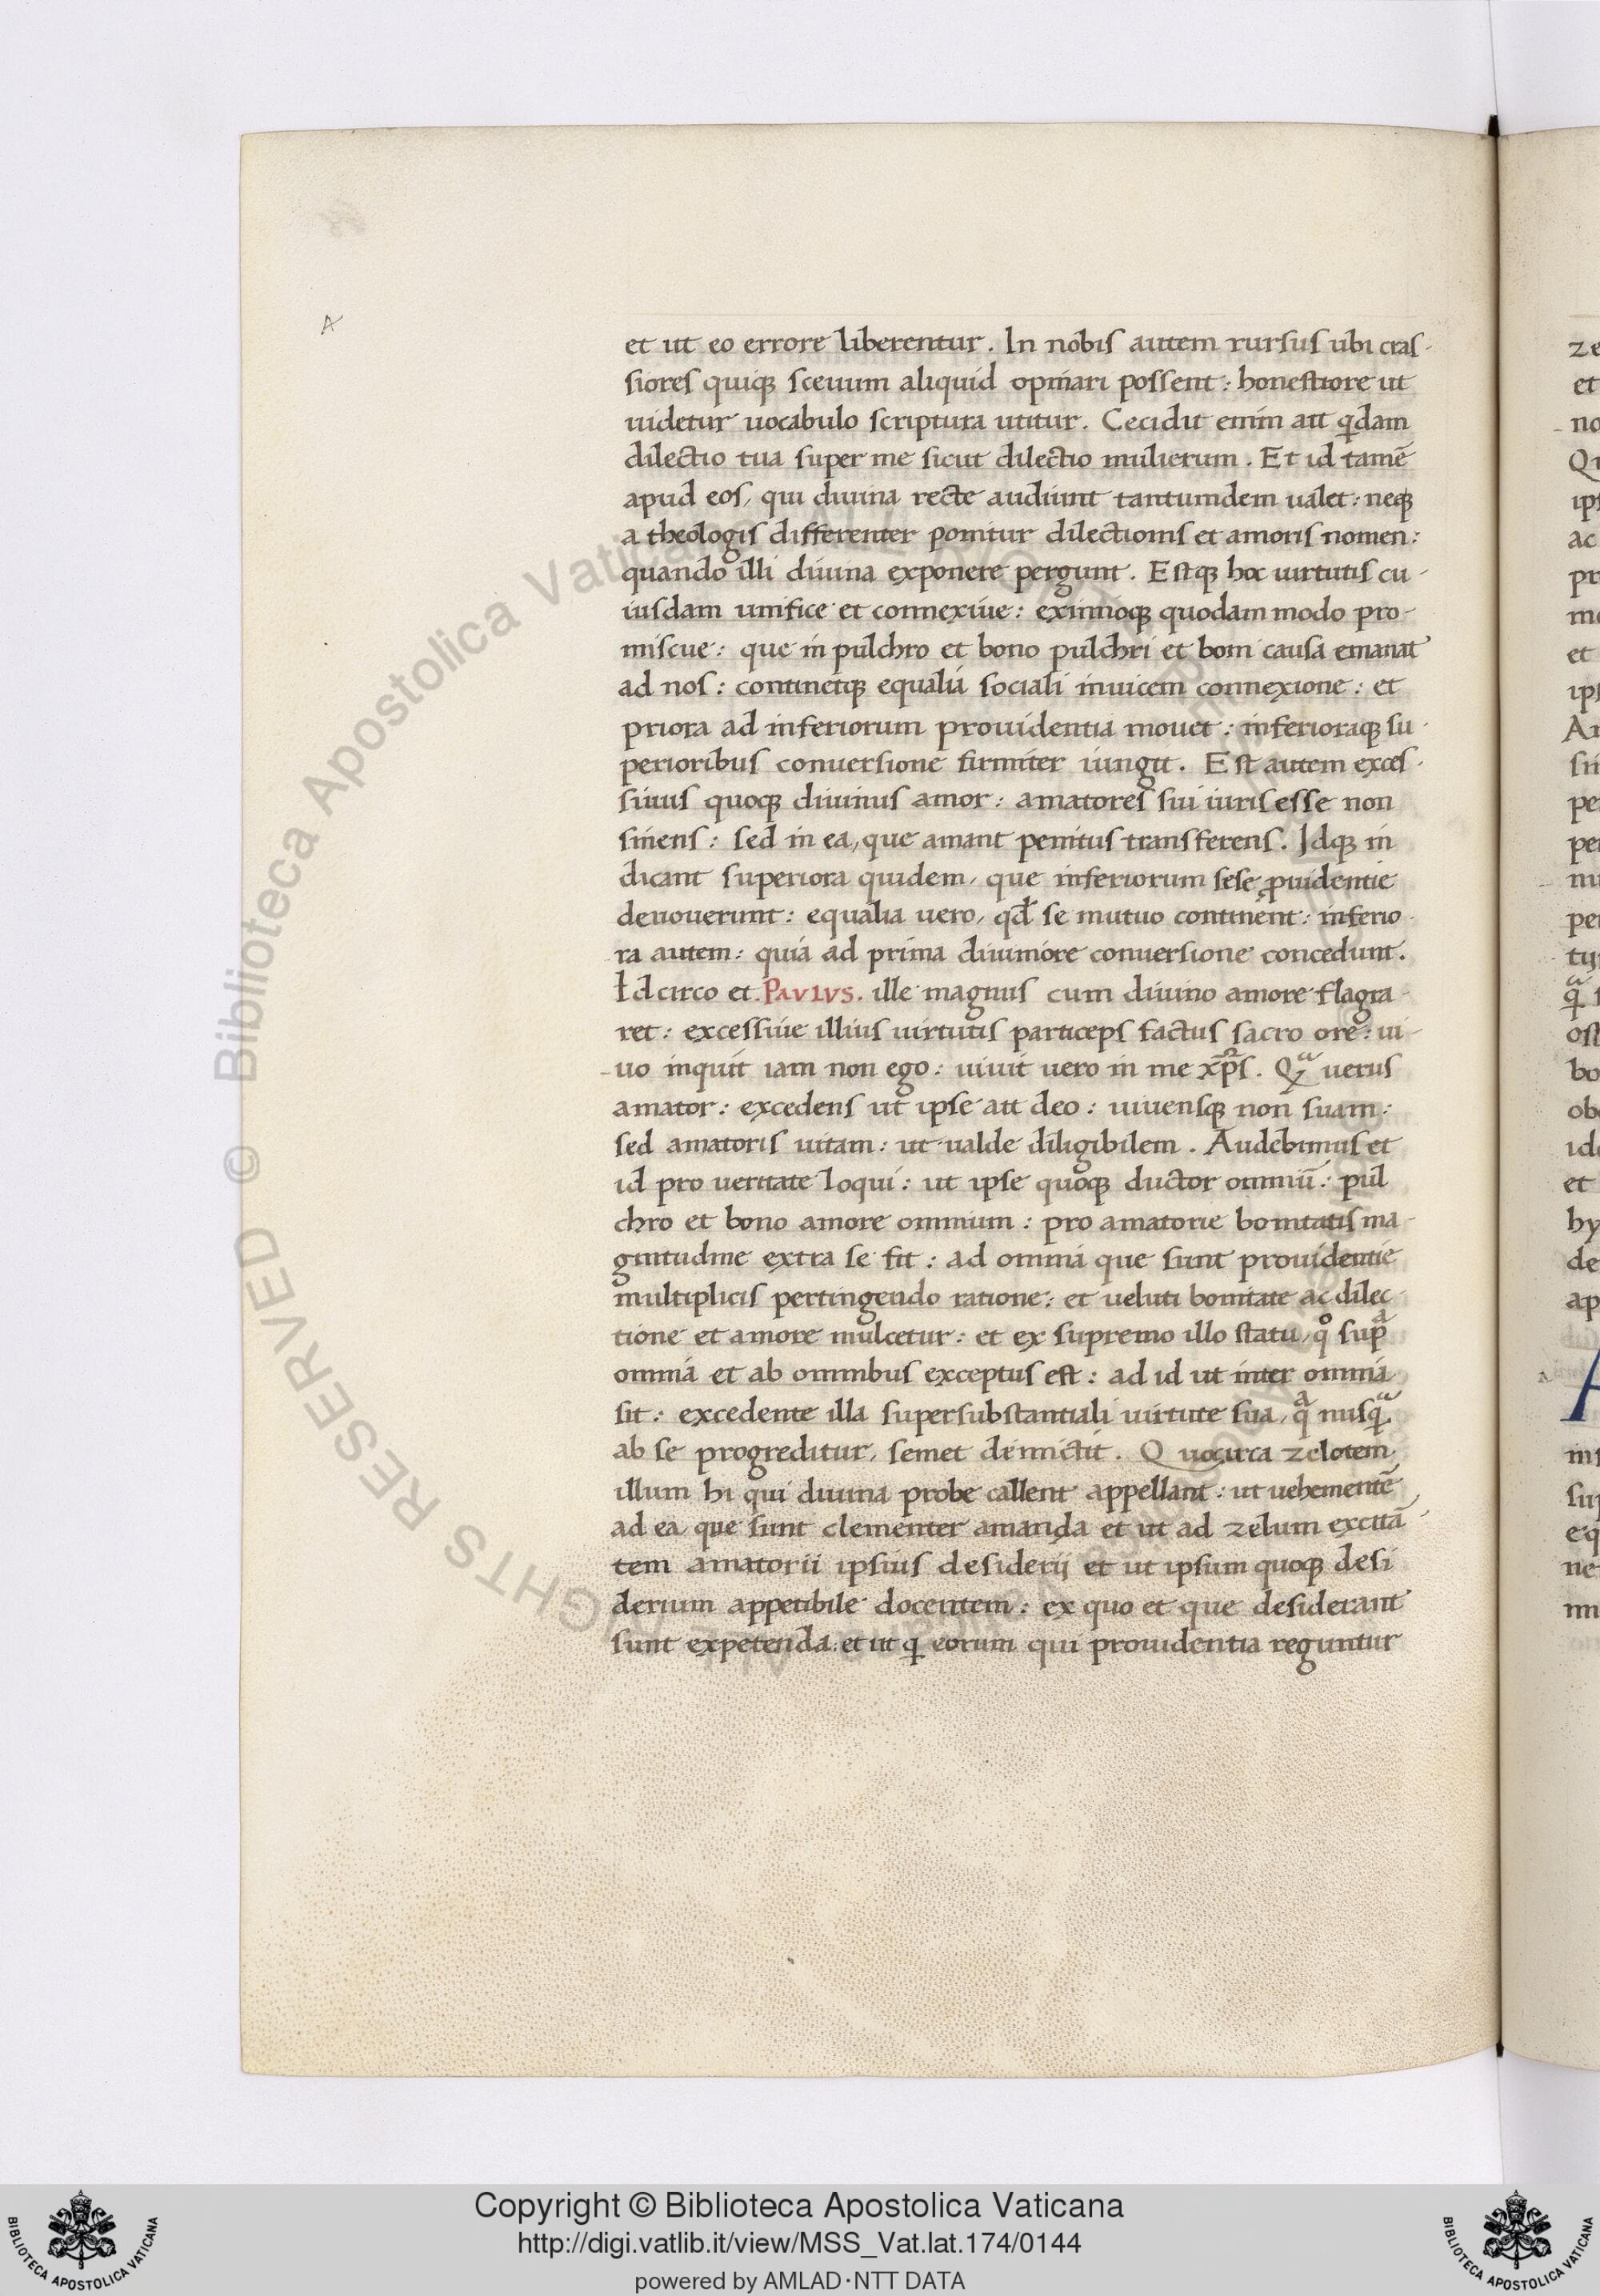 et ut eo errore liberentur. In nobis autem rursus ubi cras-
siores quiqꝫ sceuum aliquid opinari possent: honestiore ut
uidetur uocabulo scriptura utitur. Cecidit enim ait qͥdam
dilectio tua super me sicut dilectio mulierum. Et id tamē
apud eos, qui diuina recte audiunt tantumdem ualet: neqꝫ
a theologis differenter ponitur dilectionis et amoris nomen:
quando illi diuina exponere pergunt. Estqꝫ hoc uirtutis cu-
iusdam unifice et connexiue: eximioqꝫ quodam modo pro-
miscue: que in pulchro et bono pulchri et boni causa emanat
ad nos: continetqꝫ equalia sociali inuicem connexione: et
priora ad inferiorum prouidentia mouet: inferioraqꝫ su-
perioribus conuersione firmiter iungit. Est autem exces-
siuus quoqꝫ diuinus amor: amatores sui iuris esse non
sinens: sed in ea, que amant penitus transferens. Idqꝫ in
dicant superiora quidem, que inferiorum sese ꝓuidentie
deuouerunt: equalia uero, qđ se mutuo continent: inferio-
ra autem: quia ad prima diuiniore conuersione concedunt.
Idcirco et. PAVLVS. ille magnus cum diuino amore flagra-
ret: excessiue illius uirtutis particeps factus sacro ore: ui-
uo inquit iam non ego: uiuit uero in me xp̄s. Qᵃ uerus
amator: excedens ut ipse ait deo: uiuensqꝫ non suam:
sed amatoris uitam: ut ualde diligibilem. Audebimus et
id pro ueritate loqui: ut ipse quoqꝫ ductor omniū: pul
chro et bono amore omnium: pro amatorie bonitatis ma-
gnitudine extra se fit: ad omnia que sunt prouidentie
multiplicis pertingendo ratione: et ueluti bonitate ac dilec-
tione et amore mulcetur: et ex supremo illo statu, qͦ supᵃ
omnia et ab omnibus exceptus est: ad id ut inter omnia
sit: excedente illa supersubstantiali uirtute sua, qᵃ nusqᵃ
ab se progreditur, semet demictit. Quocirca zelotem
illum hi qui diuina probe callent appellant: ut uehementē
ad ea, que sunt clementer amanda et ut ad zelum excitā
tem amatorii ipsius desiderij et ut ipsum quoqꝫ desi
derium appetibile docentem: ex quo et que desiderant
sunt expetenda: et ut qͥ eorum qui prouidentia reguntur
Copyright © Biblioteca Apostolica Vaticana
http://digi.vatlib.it/view/MSS_Vat.lat.174/0144
powered by AMLAD·NTT DATA